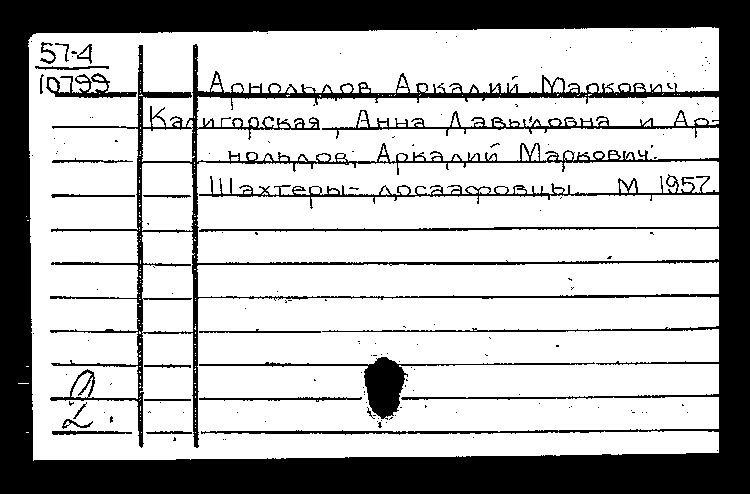 57-4
10799
Арнольдов, Аркадий Маркович
Калигорская, Анна Давыдовна и Ар-
нольдов, Аркадий Маркович.
Шахтеры-досаафовцы. М, 1957.
2.